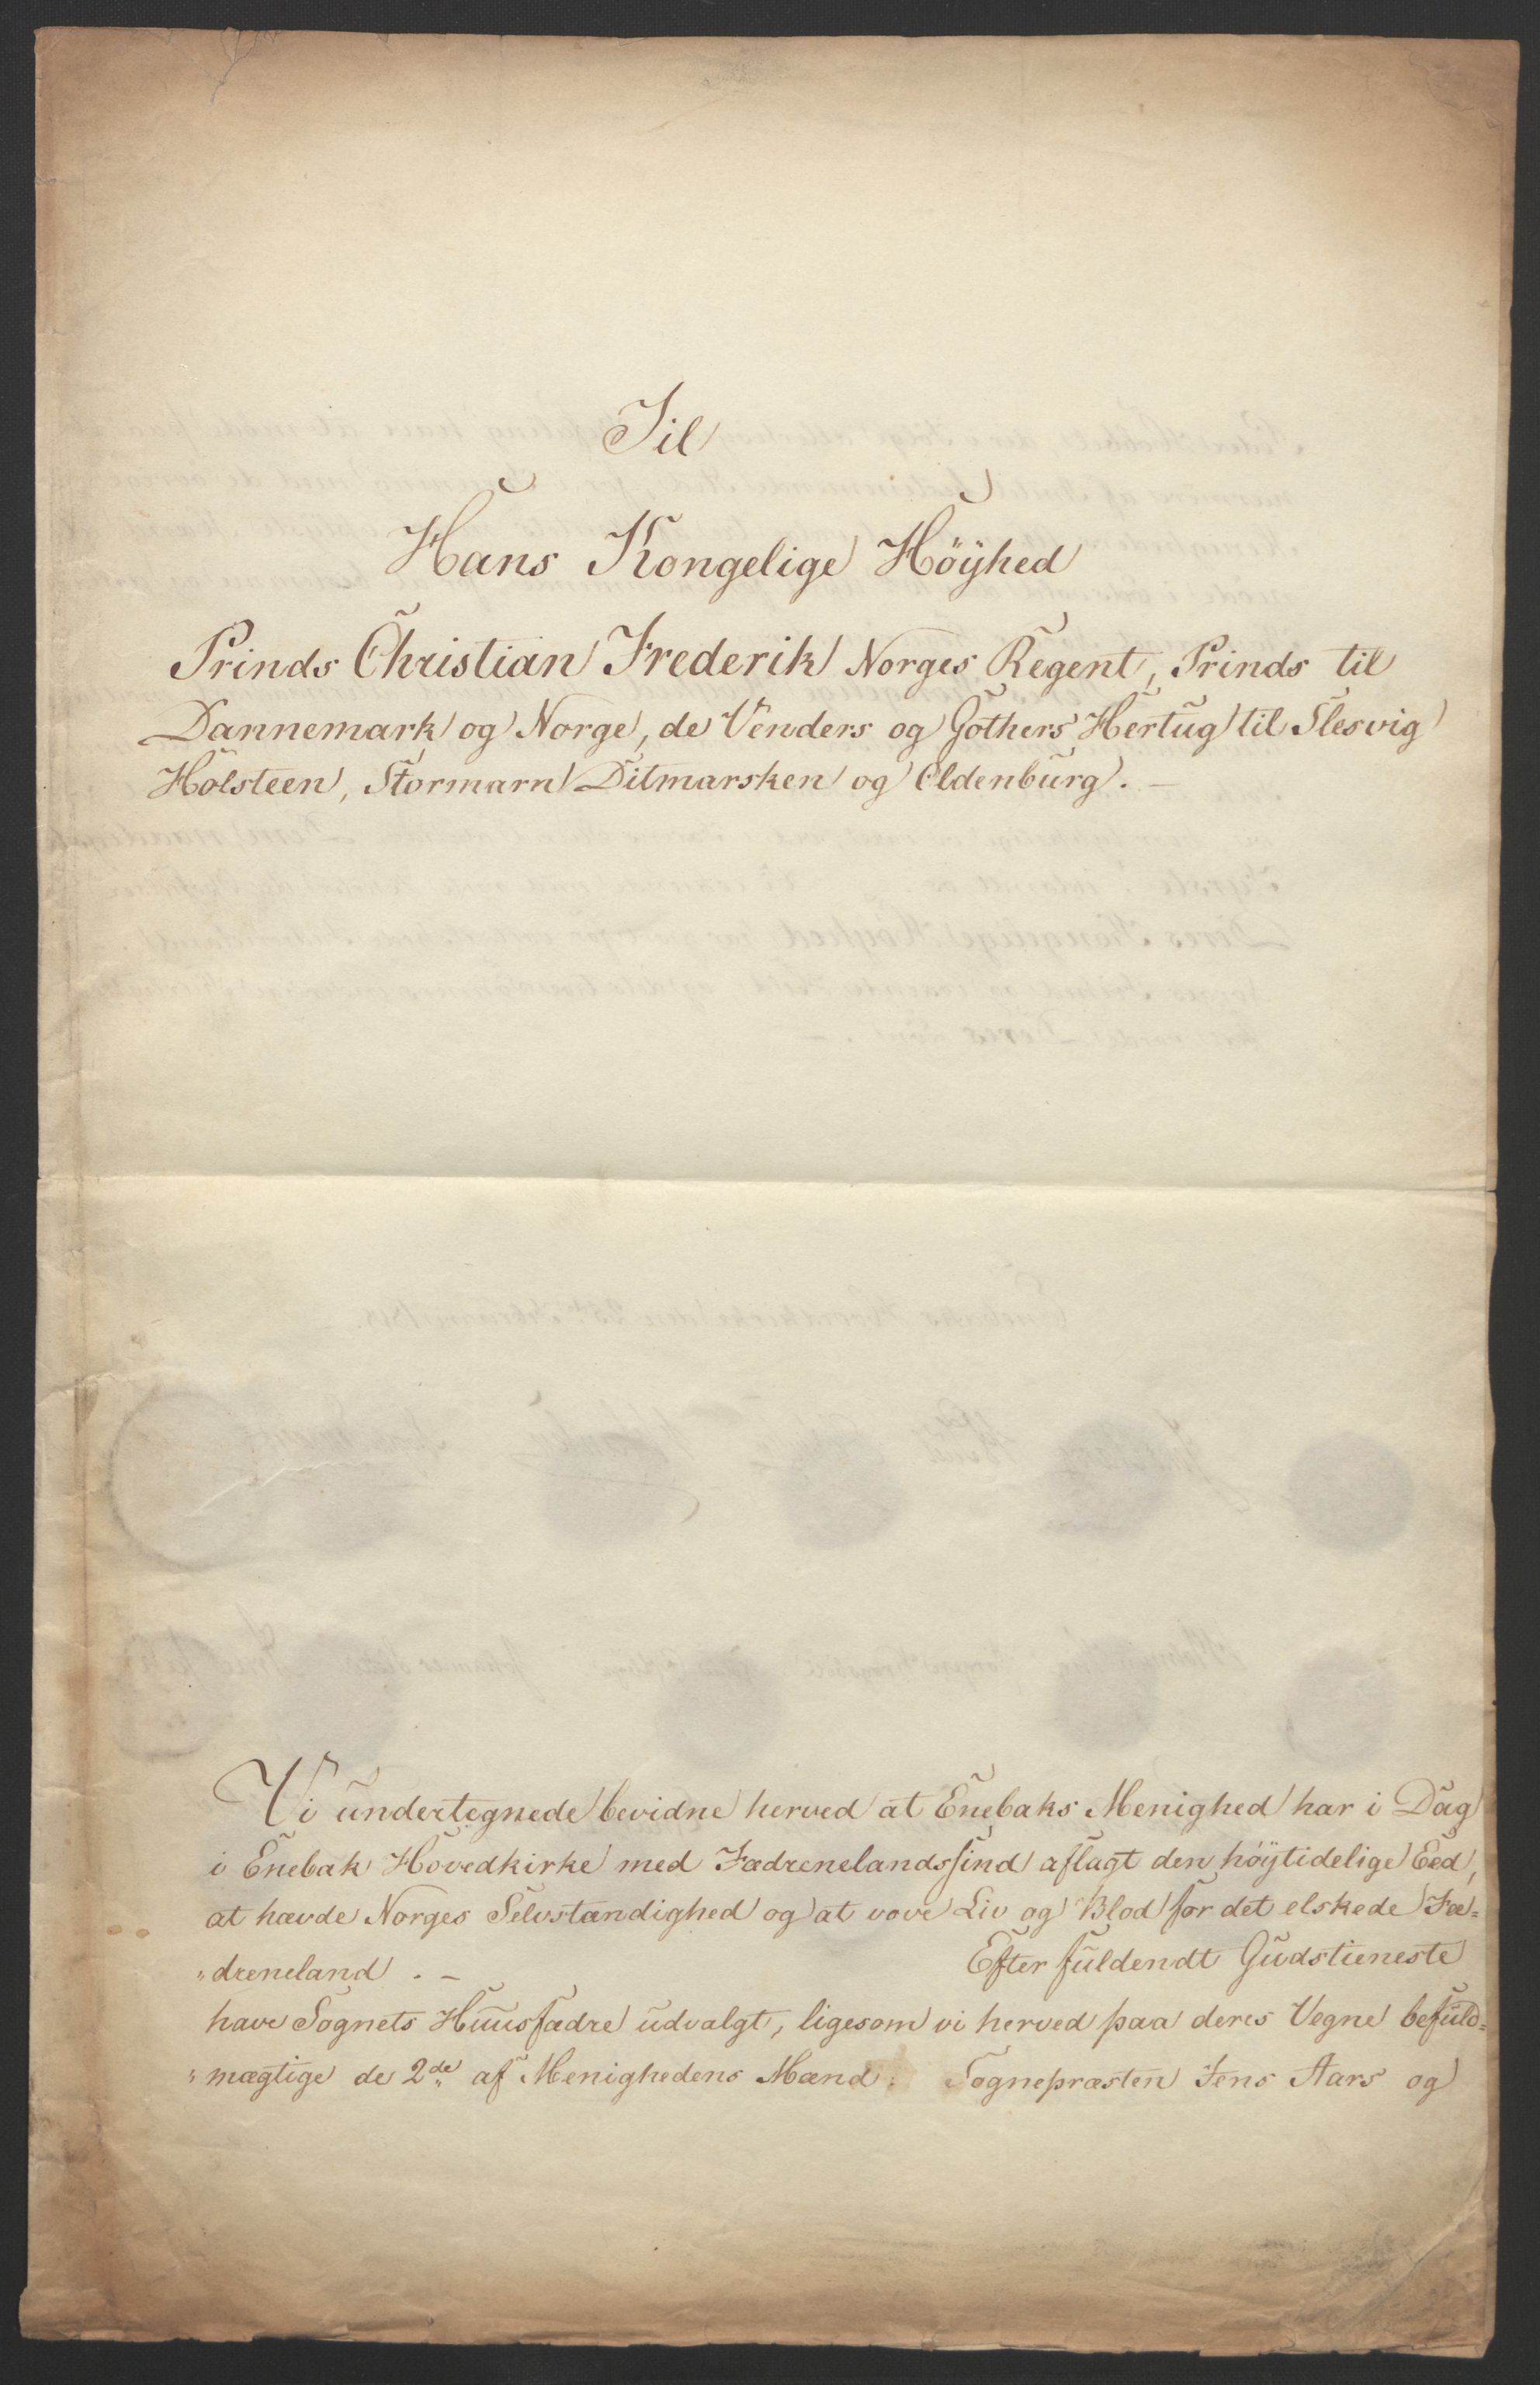 Til
Hans Kongelige Höÿhed
Prinds Christian Frederik Norges Regent, Prinds til
Dannemark og Norge, de Venders og Gothers Hertug til Slesvig
Holsteen, Stormarn Ditmarsken og Oldenburg. —
Vi undertegnede bevidne herved at Enebaks Menighed har i Dag
i Enebak Hovedkirke med Fædrenelandssind aflagt den höÿtidelige Eed,
at hævde Norges Selvstændighed og at vove Liv og Blod for det elskede Fæ=
"dreneland. — Efter fuldendt Gudstieneste
have Sognets Huusfædre udvalgt, ligesom vi herved paa deres Vegne befuld=
"mægtige de 2de af Menighedens Mænd: Sognepræsten Jens Aars og